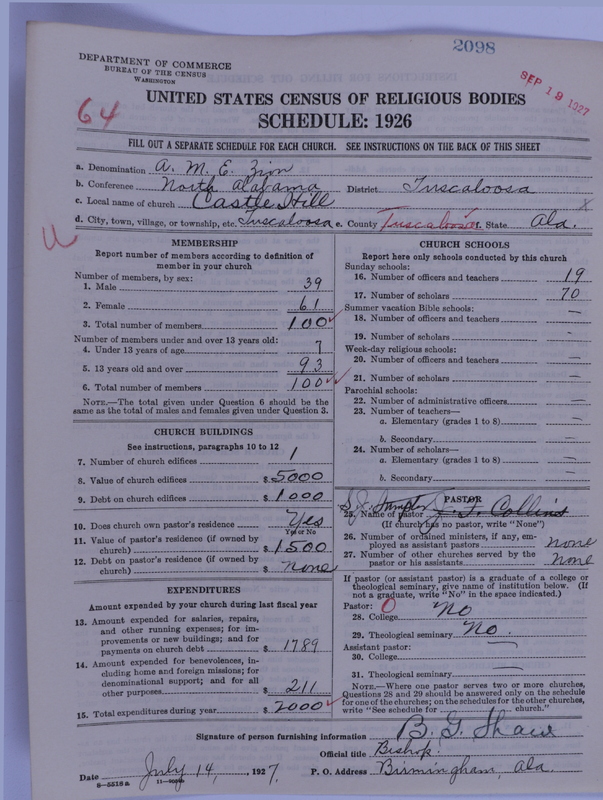 2098
DEPARTMENT OF COMMERCE
BUREAU OF THE CENSUS
WASHINGTON
SEP 19 1927
64
UNITED STATES CENSUS OF RELIGIOUS BODIES
SCHEDULE: 1926
FILL OUT A SEPARATE SCHEDULE FOR EACH CHURCH. SEE INSTRUCTIONS ON THE BACK OF THIS SHEET
a. Denomination A. M. E. Zion
b. Conference North Alabama District Tuscaloosa
c. Local name of church Castle Hill X
d. City, town, village, or township, etc. Tuscaloosa e. County Tuscaloosa f. State Ala.
U
MEMBERSHIP
Report number of members according to definition of
member in your church
Number of members, by sex:
1. Male 39
2. Female 61
3. Total number of members 100 ✓
Number of members under and over 13 years old:
4. Under 13 years of age 7
5. 13 years old and over 93
6. Total number of members 100 ✓
NOTE.—The total given under Question 6 should be the
same as the total of males and females given under Question 3.
CHURCH BUILDINGS
See instructions, paragraphs 10 to 12
7. Number of church edifices 1
8. Value of church edifices $ 5000
9. Debt on church edifices $ 1000
10. Does church own pastor's residence Yes
Yes or No
11. Value of pastor's residence (if owned by
church) $ 1500
12. Debt on pastor's residence (if owned by
church) $ none
EXPENDITURES
Amount expended by your church during last fiscal year
13. Amount expended for salaries, repairs,
and other running expenses; for im-
provements or new buildings; and for
payments on church debt $ 1789
14. Amount expended for benevolences, in-
cluding home and foreign missions; for
denominational support; and for all
other purposes $ 211
15. Total expenditures during year $ 2000 ✓
CHURCH SCHOOLS
Report here only schools conducted by this church
Sunday schools:
16. Number of officers and teachers 19
17. Number of scholars 70
Summer vacation Bible schools:
18. Number of officers and teachers —
19. Number of scholars —
Week-day religious schools:
20. Number of officers and teachers —
21. Number of scholars —
Parochial schools:
22. Number of administrative officers —
23. Number of teachers—
a. Elementary (grades 1 to 8) —
b. Secondary —
24. Number of scholars—
a. Elementary (grades 1 to 8) —
b. Secondary —
PASTOR
25. Name of pastor Collins
(If church has no pastor, write "None")
26. Number of ordained ministers, if any, em-
ployed as assistant pastors none
27. Number of other churches served by the
pastor or his assistants none
If pastor (or assistant pastor) is a graduate of a college or
theological seminary, give name of institution below. (If
not a graduate, write "No" in the space indicated.)
Pastor: 0
28. College No
29. Theological seminary No.
Assistant pastor:
30. College —
31. Theological seminary —
NOTE.—Where one pastor serves two or more churches,
Questions 28 and 29 should be answered only on the schedule
for one of the churches; on the schedules for the other churches,
write "See schedule for church."
Signature of person furnishing information B. G. Shaw
Official title Bishop.
Date July 14, 1927. P. O. Address Birmingham, Ala.
8-5518a